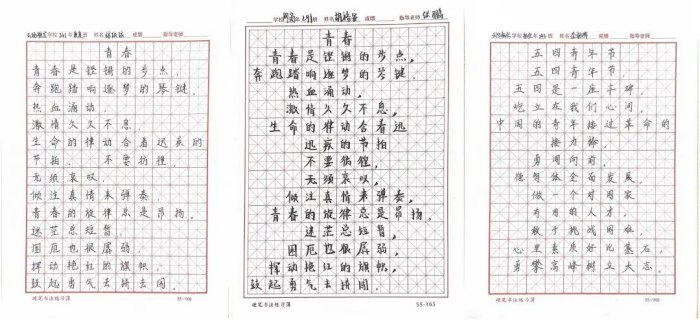 学校 241班 姓名 成绩 指导老师
青春
青春是铿锵的步点，
奔跑踏响逐梦的琴键。
热血涌动，
激情久久不息。
生命的律动合着迅疾的
节拍，不要彷徨
无须哀叹，
倾注真情来弹奏
青春的旋律总是昂扬，
迷茫总短暂，
困厄也很孱弱
挥动艳红的旗帜
鼓起勇气去搏去闯。
硬笔书法练习簿 55-165
学校 年 班 姓名 成绩 指导老师
青春
青春是铿锵的步点，
奔跑踏响逐梦的琴键。
热血涌动，
激情久久不息。
生命的律动合着迅
迅疾的节拍
不要彷徨，
无须哀叹，
倾注真情来弹奏，
青春的旋律总是昂扬。
迷茫总短暂，
困厄也很孱弱，
挥动艳红的旗帜，
鼓起勇气去搏闯。
硬笔书法练习簿 55-165
学校 年 班 姓名 成绩 指导老师
五四青年节
五四青年节
五四是一座丰碑，
屹立在我们心间，
中国的青年接过革命的
接力棒，
勇闯向前。
德智体全面发展，
做一个对国家
有用的人才。
敢于挑战困难，
心里素质好比基石，
勇攀高峰树立大志。
硬笔书法练习簿 55-165